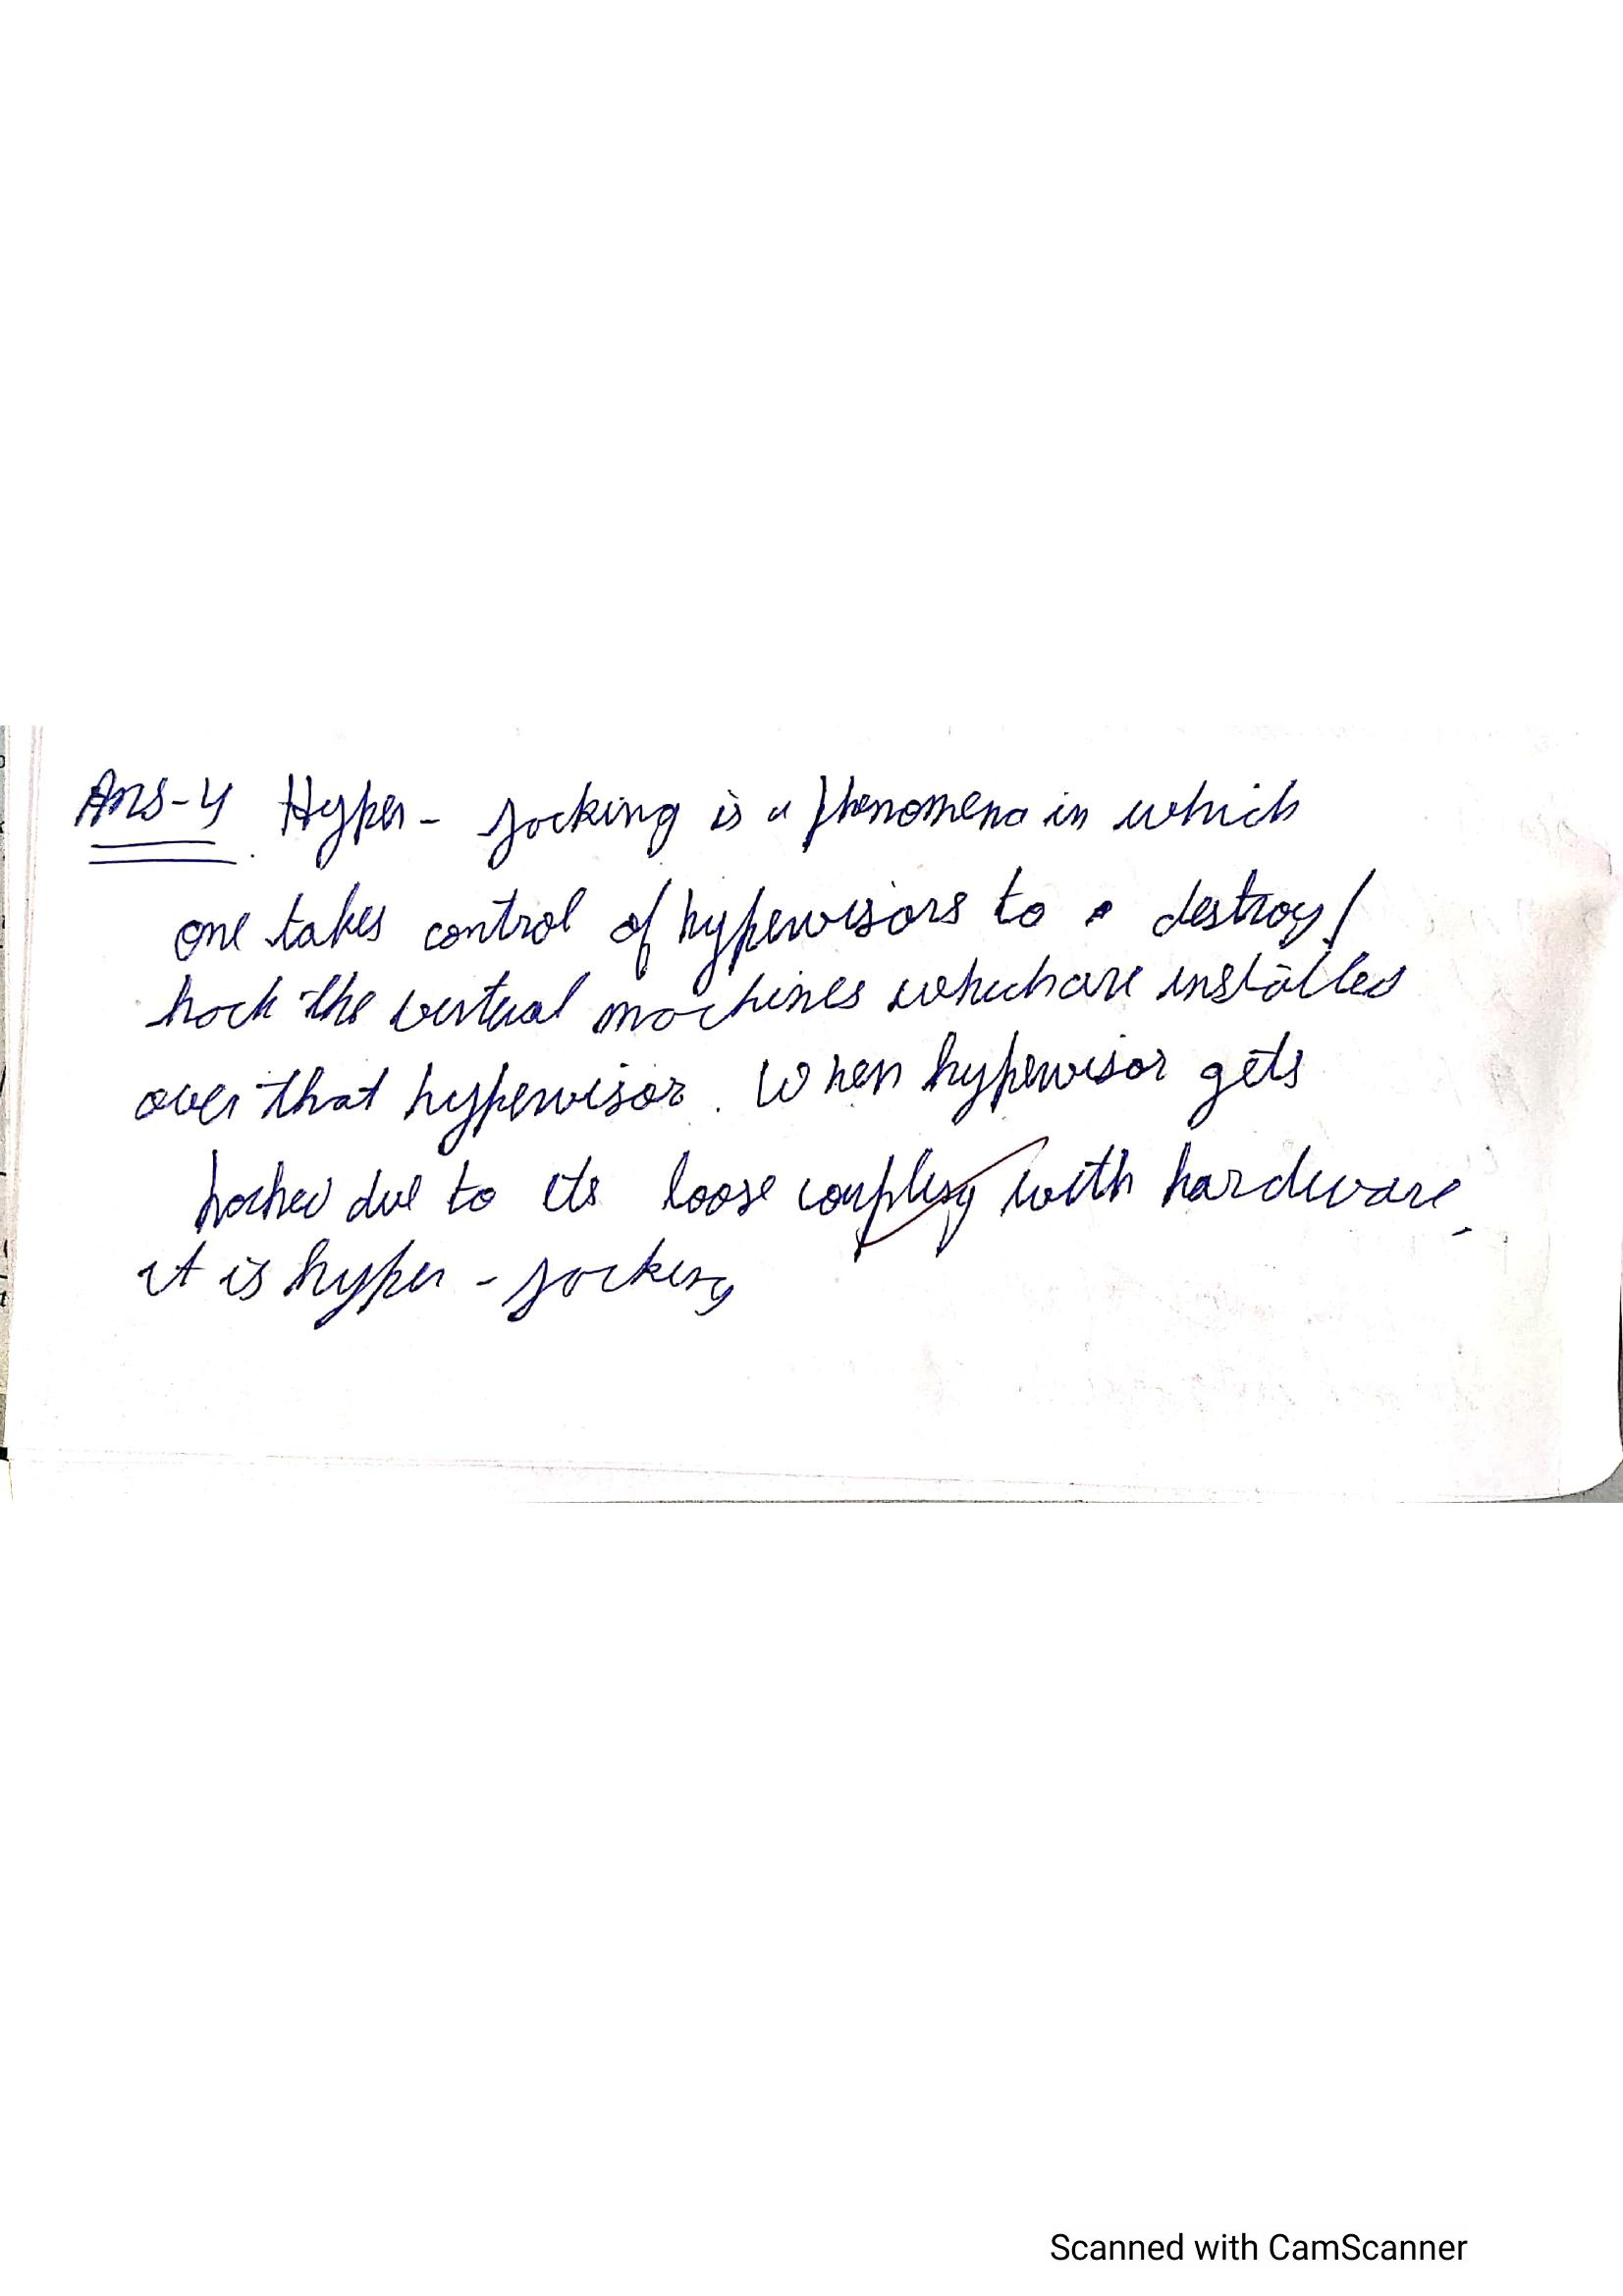 Ans-4 Hyper - jacking is a phenomena in which
one takes control of hypervisors to destroy/
hack the virtual machines which are installed
over that hypervisor. When hypervisor gets
hacked due to its loose coupling with hardware,
it is hyper - jacking
Scanned with CamScanner